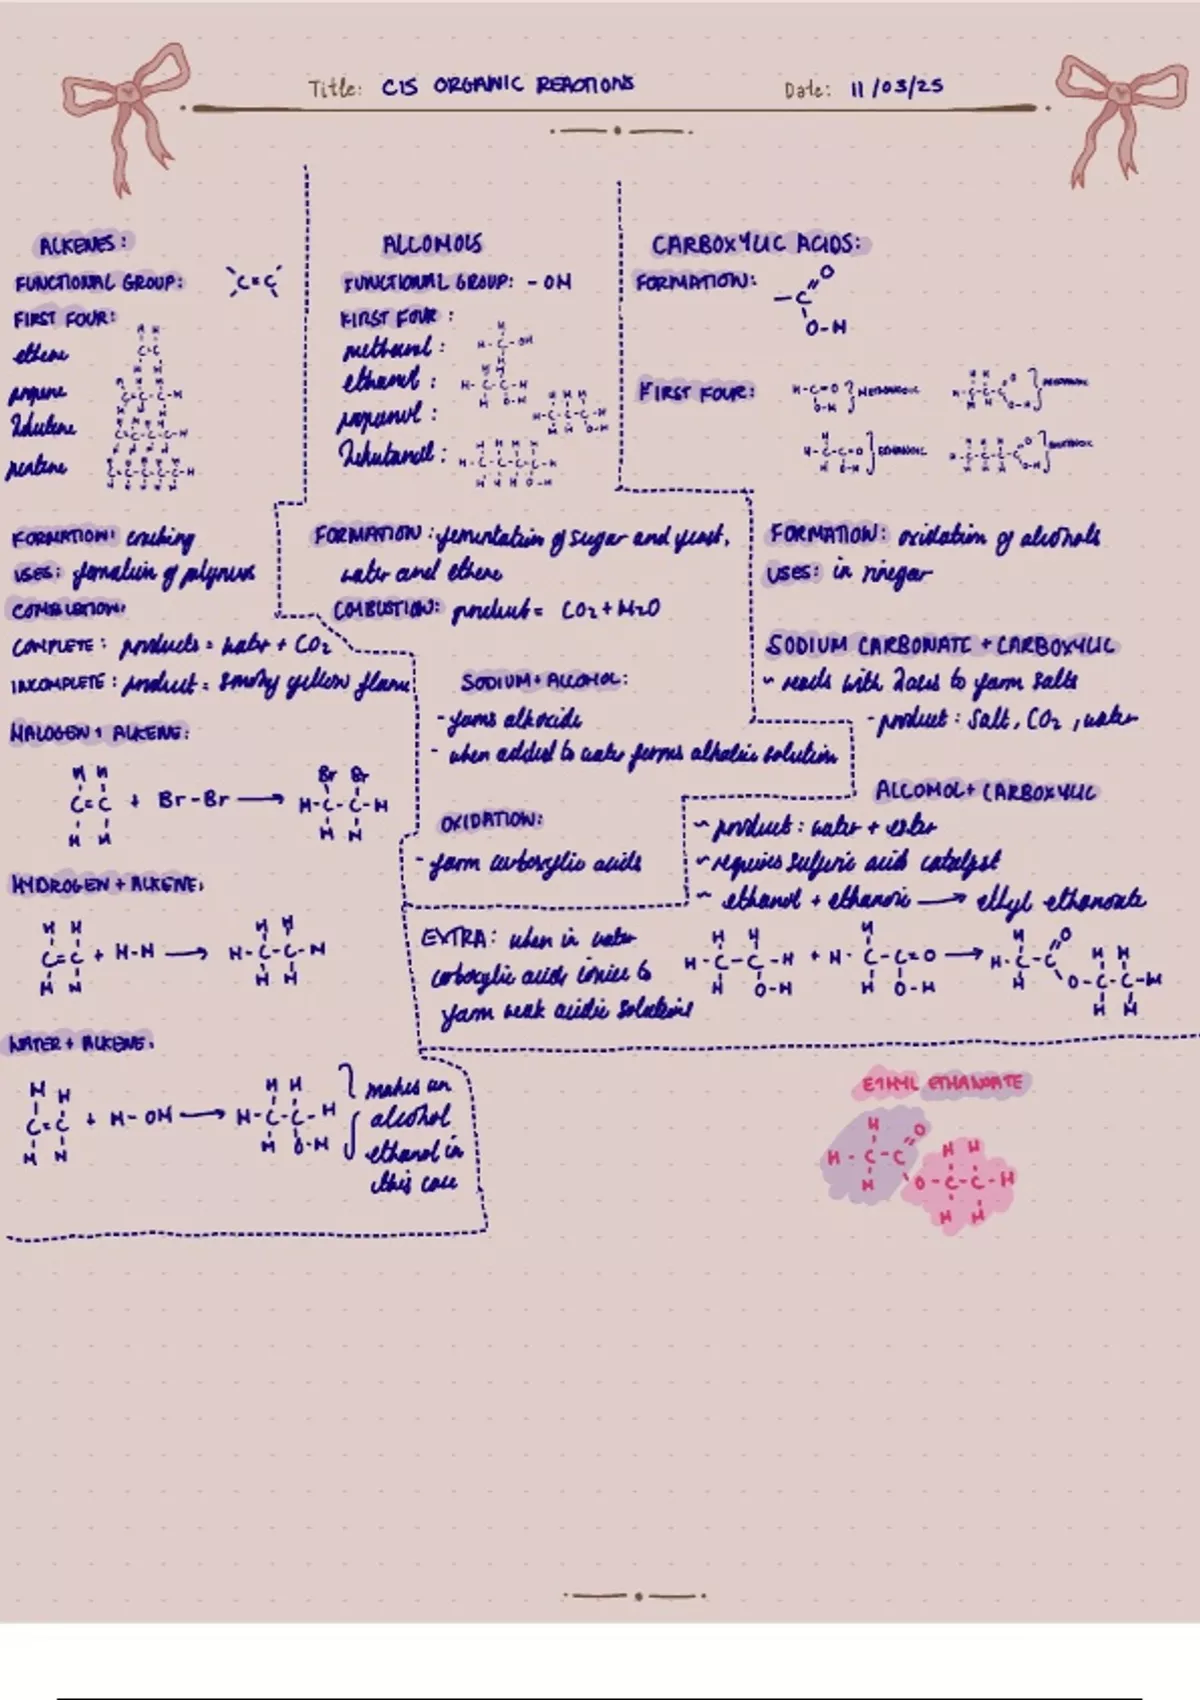 Title: C15 ORGANIC REACTIONS
Date: 11/03/25
ALKENES:
FUNCTIONAL GROUP: C=C
FIRST FOUR:
ethene
propene
butene
pentene
FORMATION: cracking
USES: formation of polymers
COMBUSTION:
COMPLETE: products = water + CO2
INCOMPLETE: product = smoky yellow flame
HALOGEN + ALKENE:
C=C + Br-Br → H-C-C-H
HYDROGEN + ALKENE:
C=C + H-H → H-C-C-H
WATER + ALKENE:
C=C + H-OH → H-C-C-H
makes an
alcohol
ethanol in
this case
ALCOHOLS
FUNCTIONAL GROUP: -OH
FIRST FOUR:
methanol:
ethanol:
propanol:
butanol:
FORMATION: fermentation of sugar and yeast,
water and ethene
COMBUSTION: product = CO2 + H2O
SODIUM + ALCOHOL:
- forms alkoxide
- when added to water forms alkaline solution
OXIDATION:
- form carboxylic acids
EXTRA: when in water
carboxylic acids ionise to
form weak acidic solutions
CARBOXYLIC ACIDS:
FORMATION:
-C
O
O-H
FIRST FOUR:
METHANOIC
ETHANOIC
FORMATION: oxidation of alcohols
USES: in vinegar
SODIUM CARBONATE + CARBOXYLIC
~ reacts with to form salts
- product: salt, CO2, water
ALCOHOL + CARBOXYLIC
~ product: water + ester
~ requires sulfuric acid catalyst
~ ethanol + ethanoic → ethyl ethanoate
H-C-C-H + H-C-C=O → H-C-C
O-C-C-H
ETHYL ETHANOATE
H-C-C
O
O-C-C-H